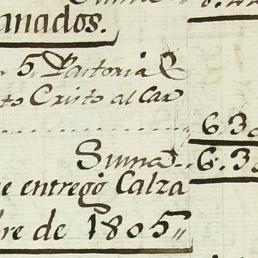 anados.
5 Pastoria
to Cristo al Car
6.3
Suma.. 6.3
e entregó Calza
bre de 1805„